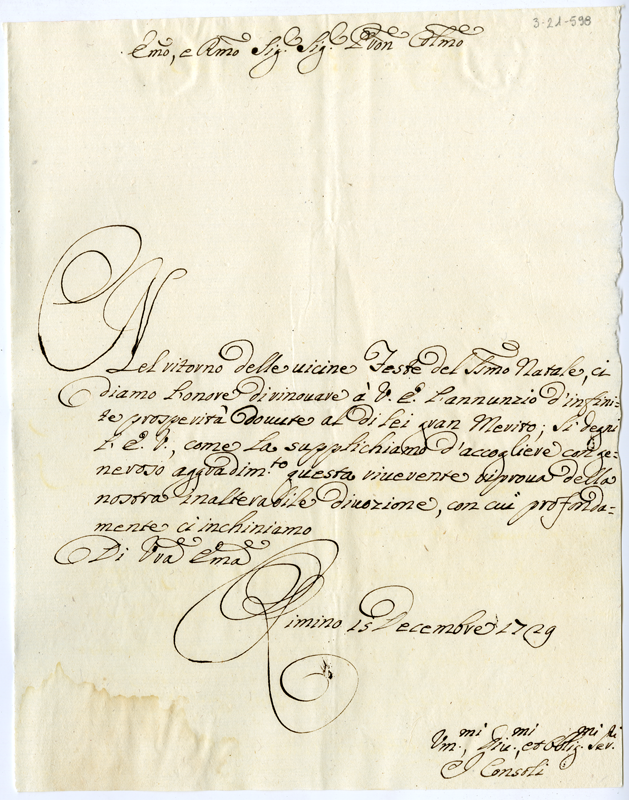 3-21-598
Emo, e Rmo Sig. Sig. Pron Colmo
Nel ritorno delle uicine Feste del Ssmo Natale, ci
diamo l'onore di rinouare à V. E. l'annunzio d'infini=
te prosperità douute al di lei gran Merito; Si degni
l'E. V., come la supplichiamo d'accogliere con ge=
neroso aggradim.to questa riuerente riproua della
nostra inalterabile diuozione, con cui profonda=
mente ci inchiniamo
Di Vra Ema
Rimino 15 Decembre 1729
Vm.mi, Diu.mi, et Oblig.mi Ser.ri
I Consoli